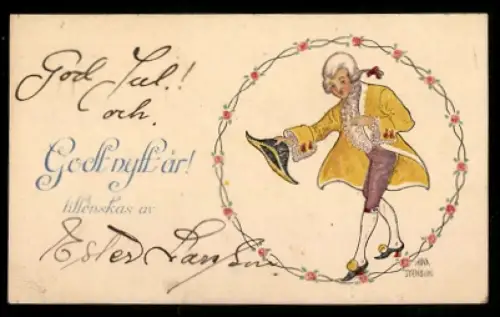 God Jul.!
och.
Godt nytt år!
tillönskas av
Ester Larsson.